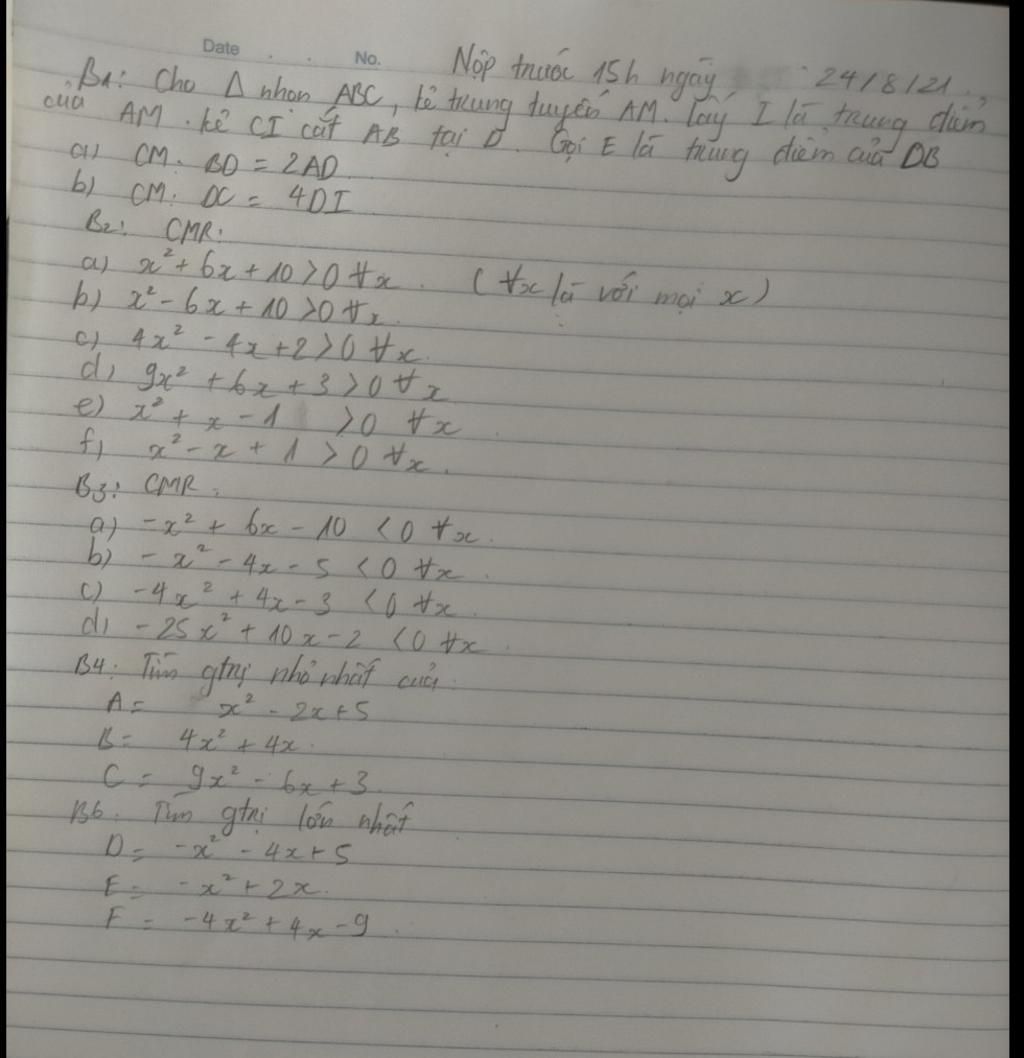 Date . . No.
Nộp trước 15h ngày 24/8/21.
B1: Cho Δ nhọn ABC, kẻ trung tuyến AM. Lấy I là trung điểm
của AM. kẻ CI cắt AB tại D. Gọi E là trung điểm của DB
a) CM: BD = 2AD
b) CM: DC = 4DI
B2: CMR:
a) x² + 6x + 10 > 0 ∀x. (∀x là với mọi x)
b) x² - 6x + 10 > 0 ∀x.
c) 4x² - 4x + 2 > 0 ∀x.
d) 9x² + 6x + 3 > 0 ∀x
e) x² + x - 1 > 0 ∀x
f) x² - x + 1 > 0 ∀x.
B3: CMR:
a) -x² + 6x - 10 < 0 ∀x.
b) -x² - 4x - 5 < 0 ∀x.
c) -4x² + 4x - 3 < 0 ∀x.
d) -25x² + 10x - 2 < 0 ∀x.
B4: Tìm gtrị nhỏ nhất của:
A = x² - 2x + 5
B = 4x² + 4x.
C = 9x² - 6x + 3
B6. Tìm gtrị lớn nhất
D = -x² - 4x + 5
E = -x² + 2x.
F = -4x² + 4x - 9.